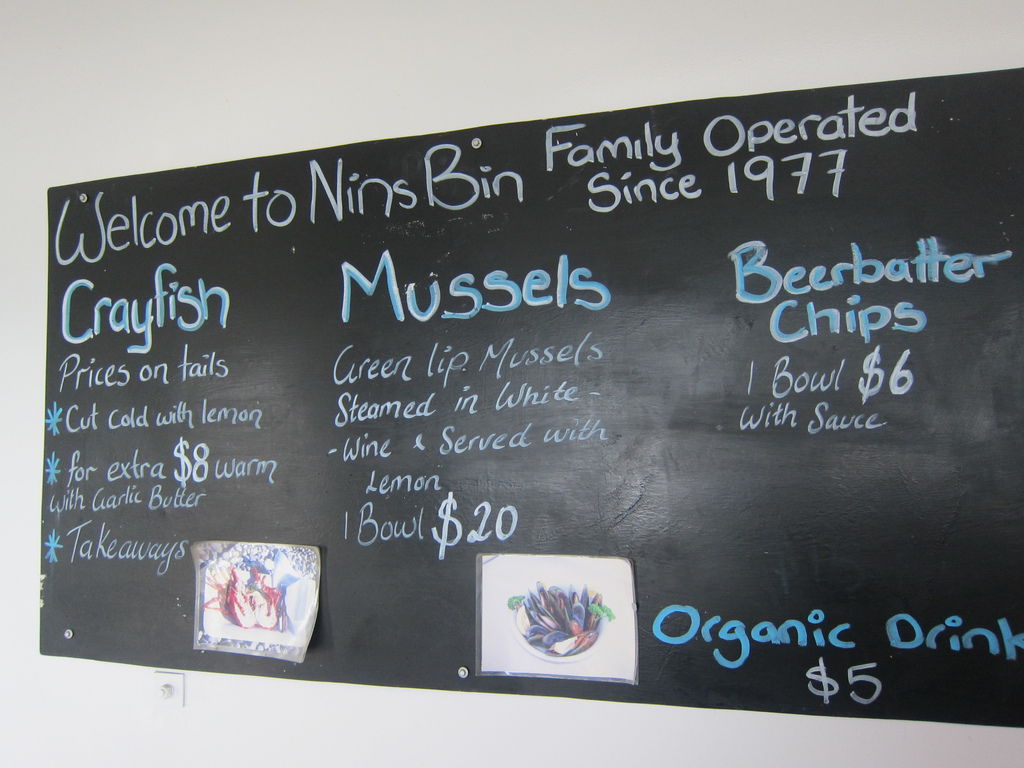 Welcome to Nins Bin Family Operated
Since 1977
Crayfish
Prices on tails
* Cut cold with lemon
* for extra $8 warm
with Garlic Butter
* Takeaways
Mussels
Green lip Mussels
Steamed in White -
- Wine & Served with
Lemon
1 Bowl $20
Beerbatter
Chips
1 Bowl $6
With Sauce
Organic Drink
$5